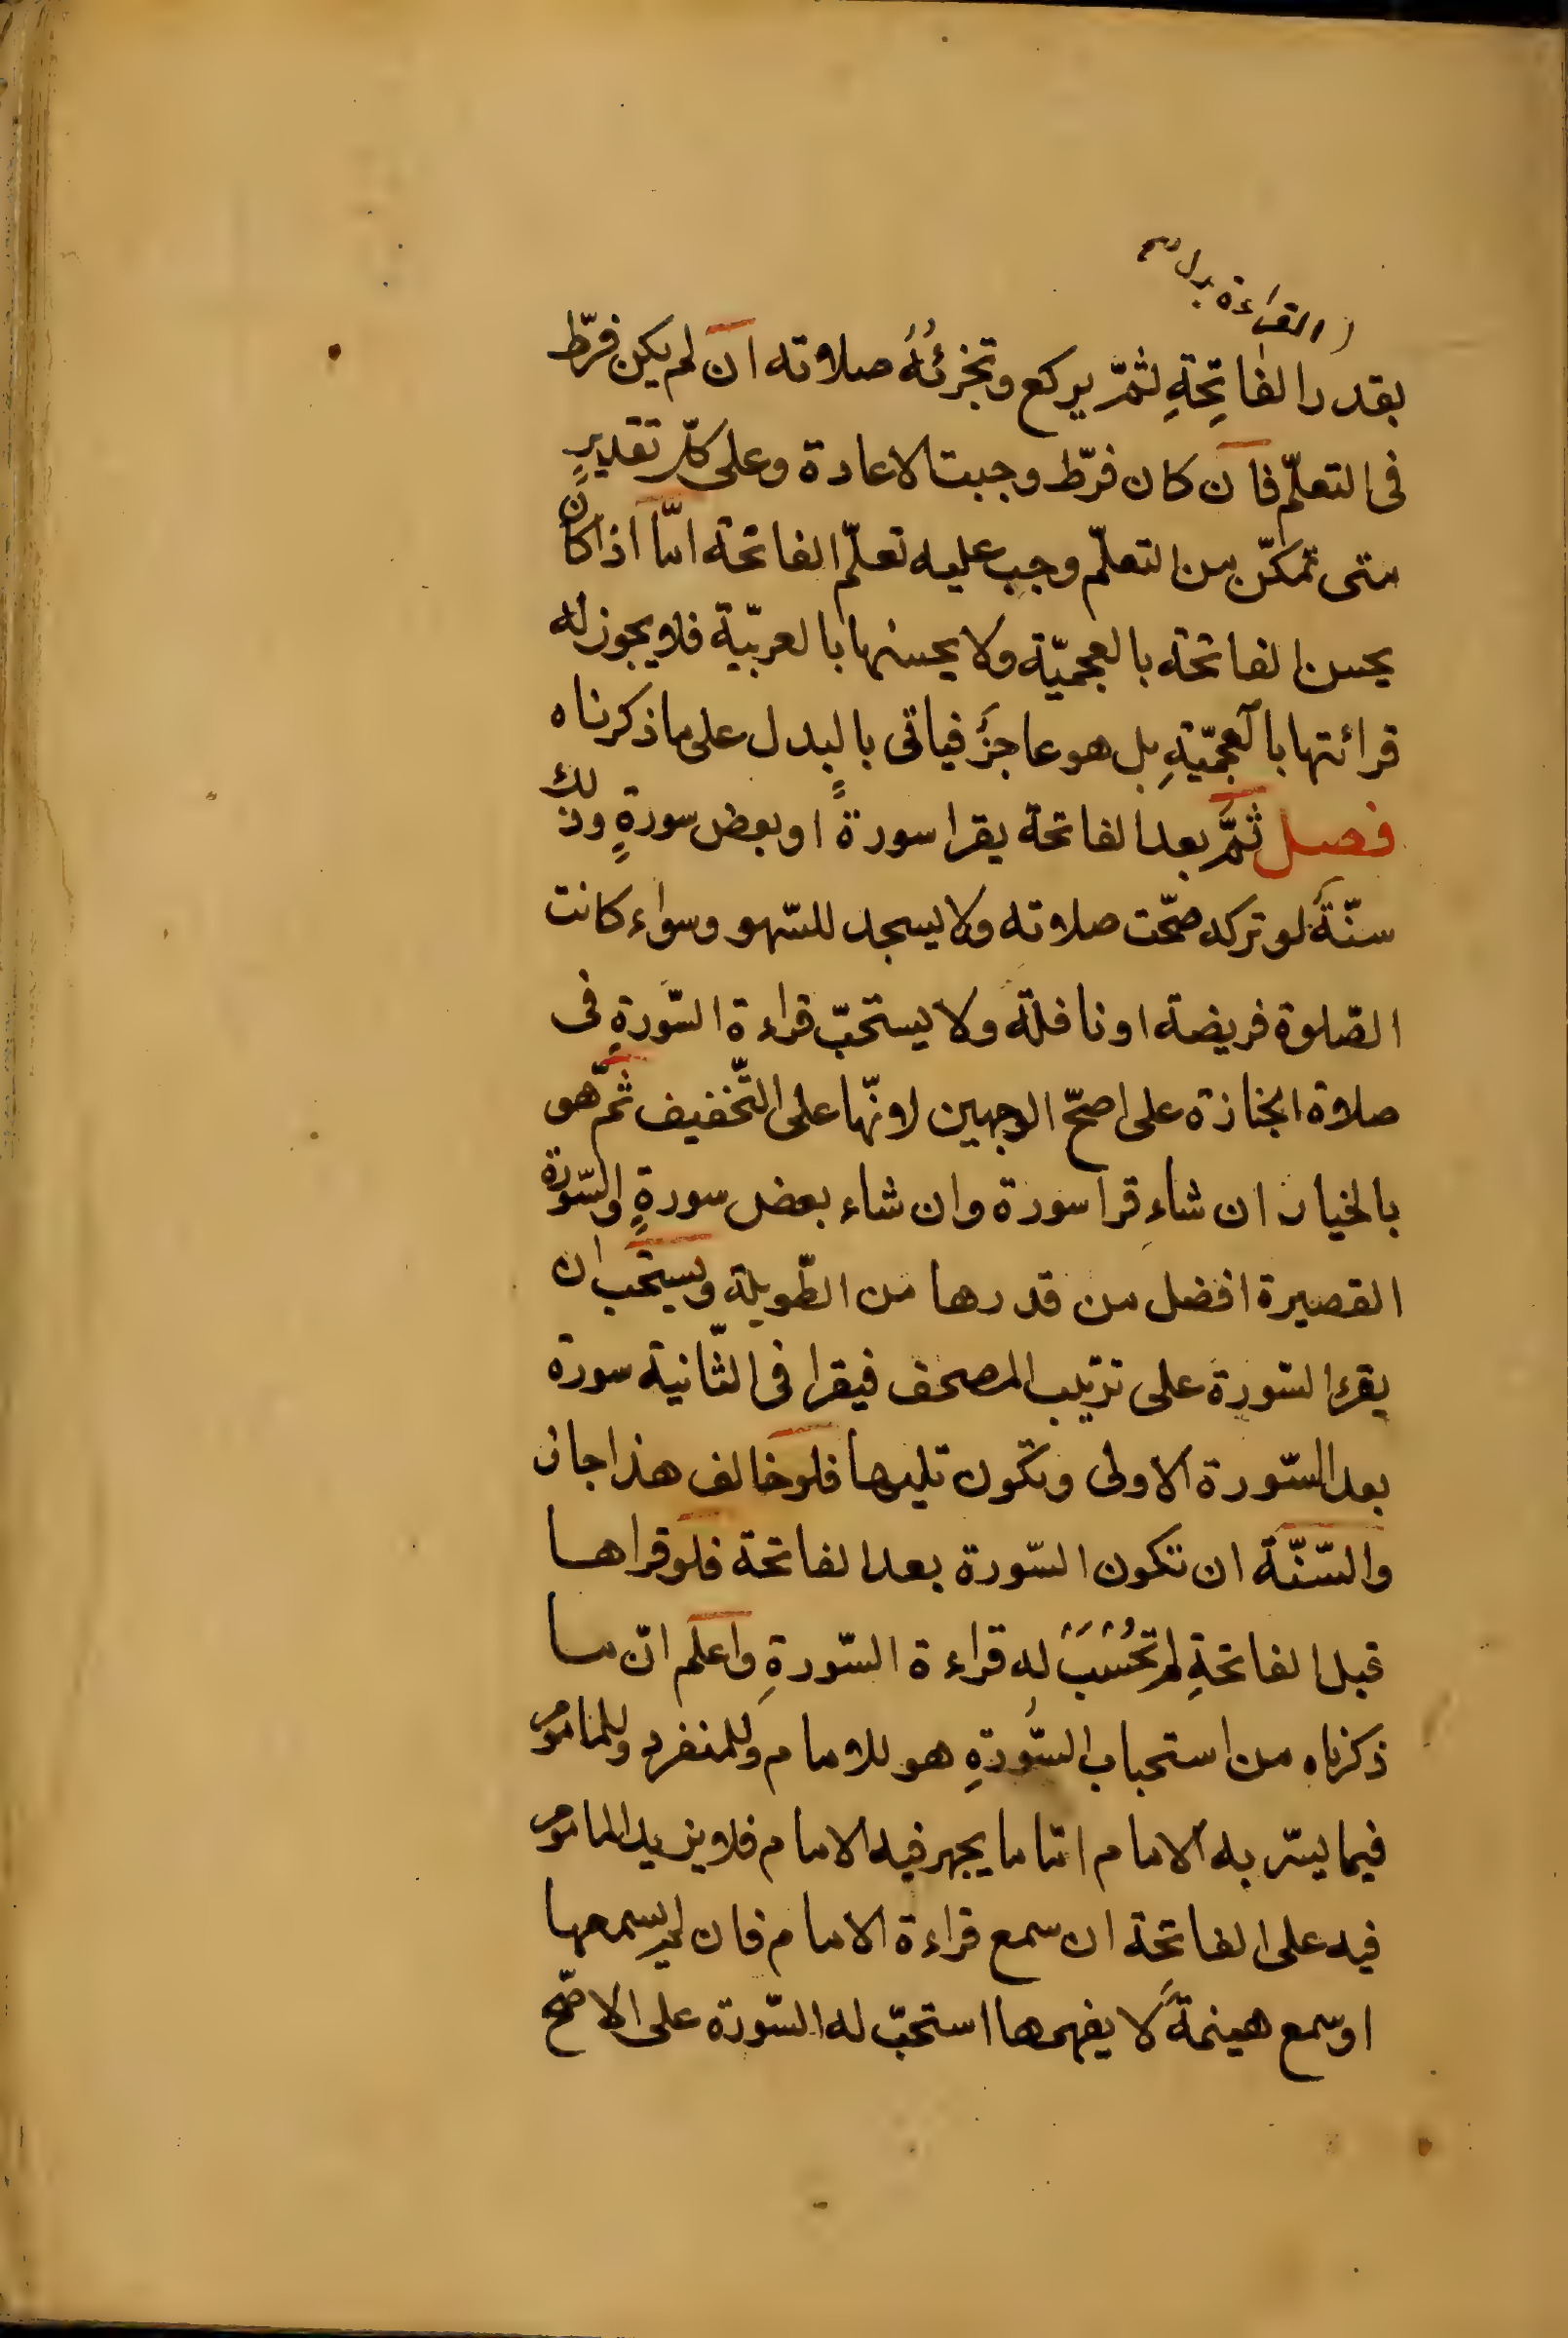 القراءة بدل
بقدر الفاتِحَةِ ثمّ يركع وتجزئُهُ صلاته ان لم يكن فرّط
فى التعلّم فان كان فرّط وجبت الاعادة وعلى كلّ تقديرٍ
متى تمكّن من التعلّم وجب عليه تعلّم الفاتحة امّا اذا كان
يحسن الفاتحة بالعجميّة ولا يحسنها بالعربيّة فلا يجوز له
قرائتها بالعجميّةِ بل هو عاجزٌ فياتى بالبدل على ما ذكرناه
فصل ثمَّ بعد الفاتحة يقرا سورةً او بعض سورةٍ وذلك
سنّةٌ لو تركه صحّت صلاته ولا يسجد للسّهو وسواء كانت
الصّلوة فريضة او نافلة ولا يستحبّ قراءة السّورةِ فى
صلاة الجنازة على اصحّ الوجهين لانّها على التّخفيف ثمّ هو
بالخيار ان شاء قرا سورة وان شاء بعض سورةٍ والسّورة
القصيرة افضل من قدرها من الطّويلة ويستحب ان
يقرء السّورة على ترتيب المصحف فيقرا فى الثّانية سورة
بعد السّورة الاولى وتكون تليها فلو خالف هذا جاز
والسّنّة ان تكون السّورة بعد الفاتحة فلو قراها
قبل الفاتحةِ لم تُحْسَبْ له قراءة السّورةِ واعلم انّ ما
ذكرناه من استحباب السُّورةِ هو للامام وللمنفرد وللماموم
فيما يسّر به الامام امّا ما يجهر فيه الامام فلا يزيد الماموم
فيه على الفاتحة ان سمع قراءة الامام فان لم يسمعها
او سمع هينمةً لا يفهمها استحبّ له السّورة على الاصّح